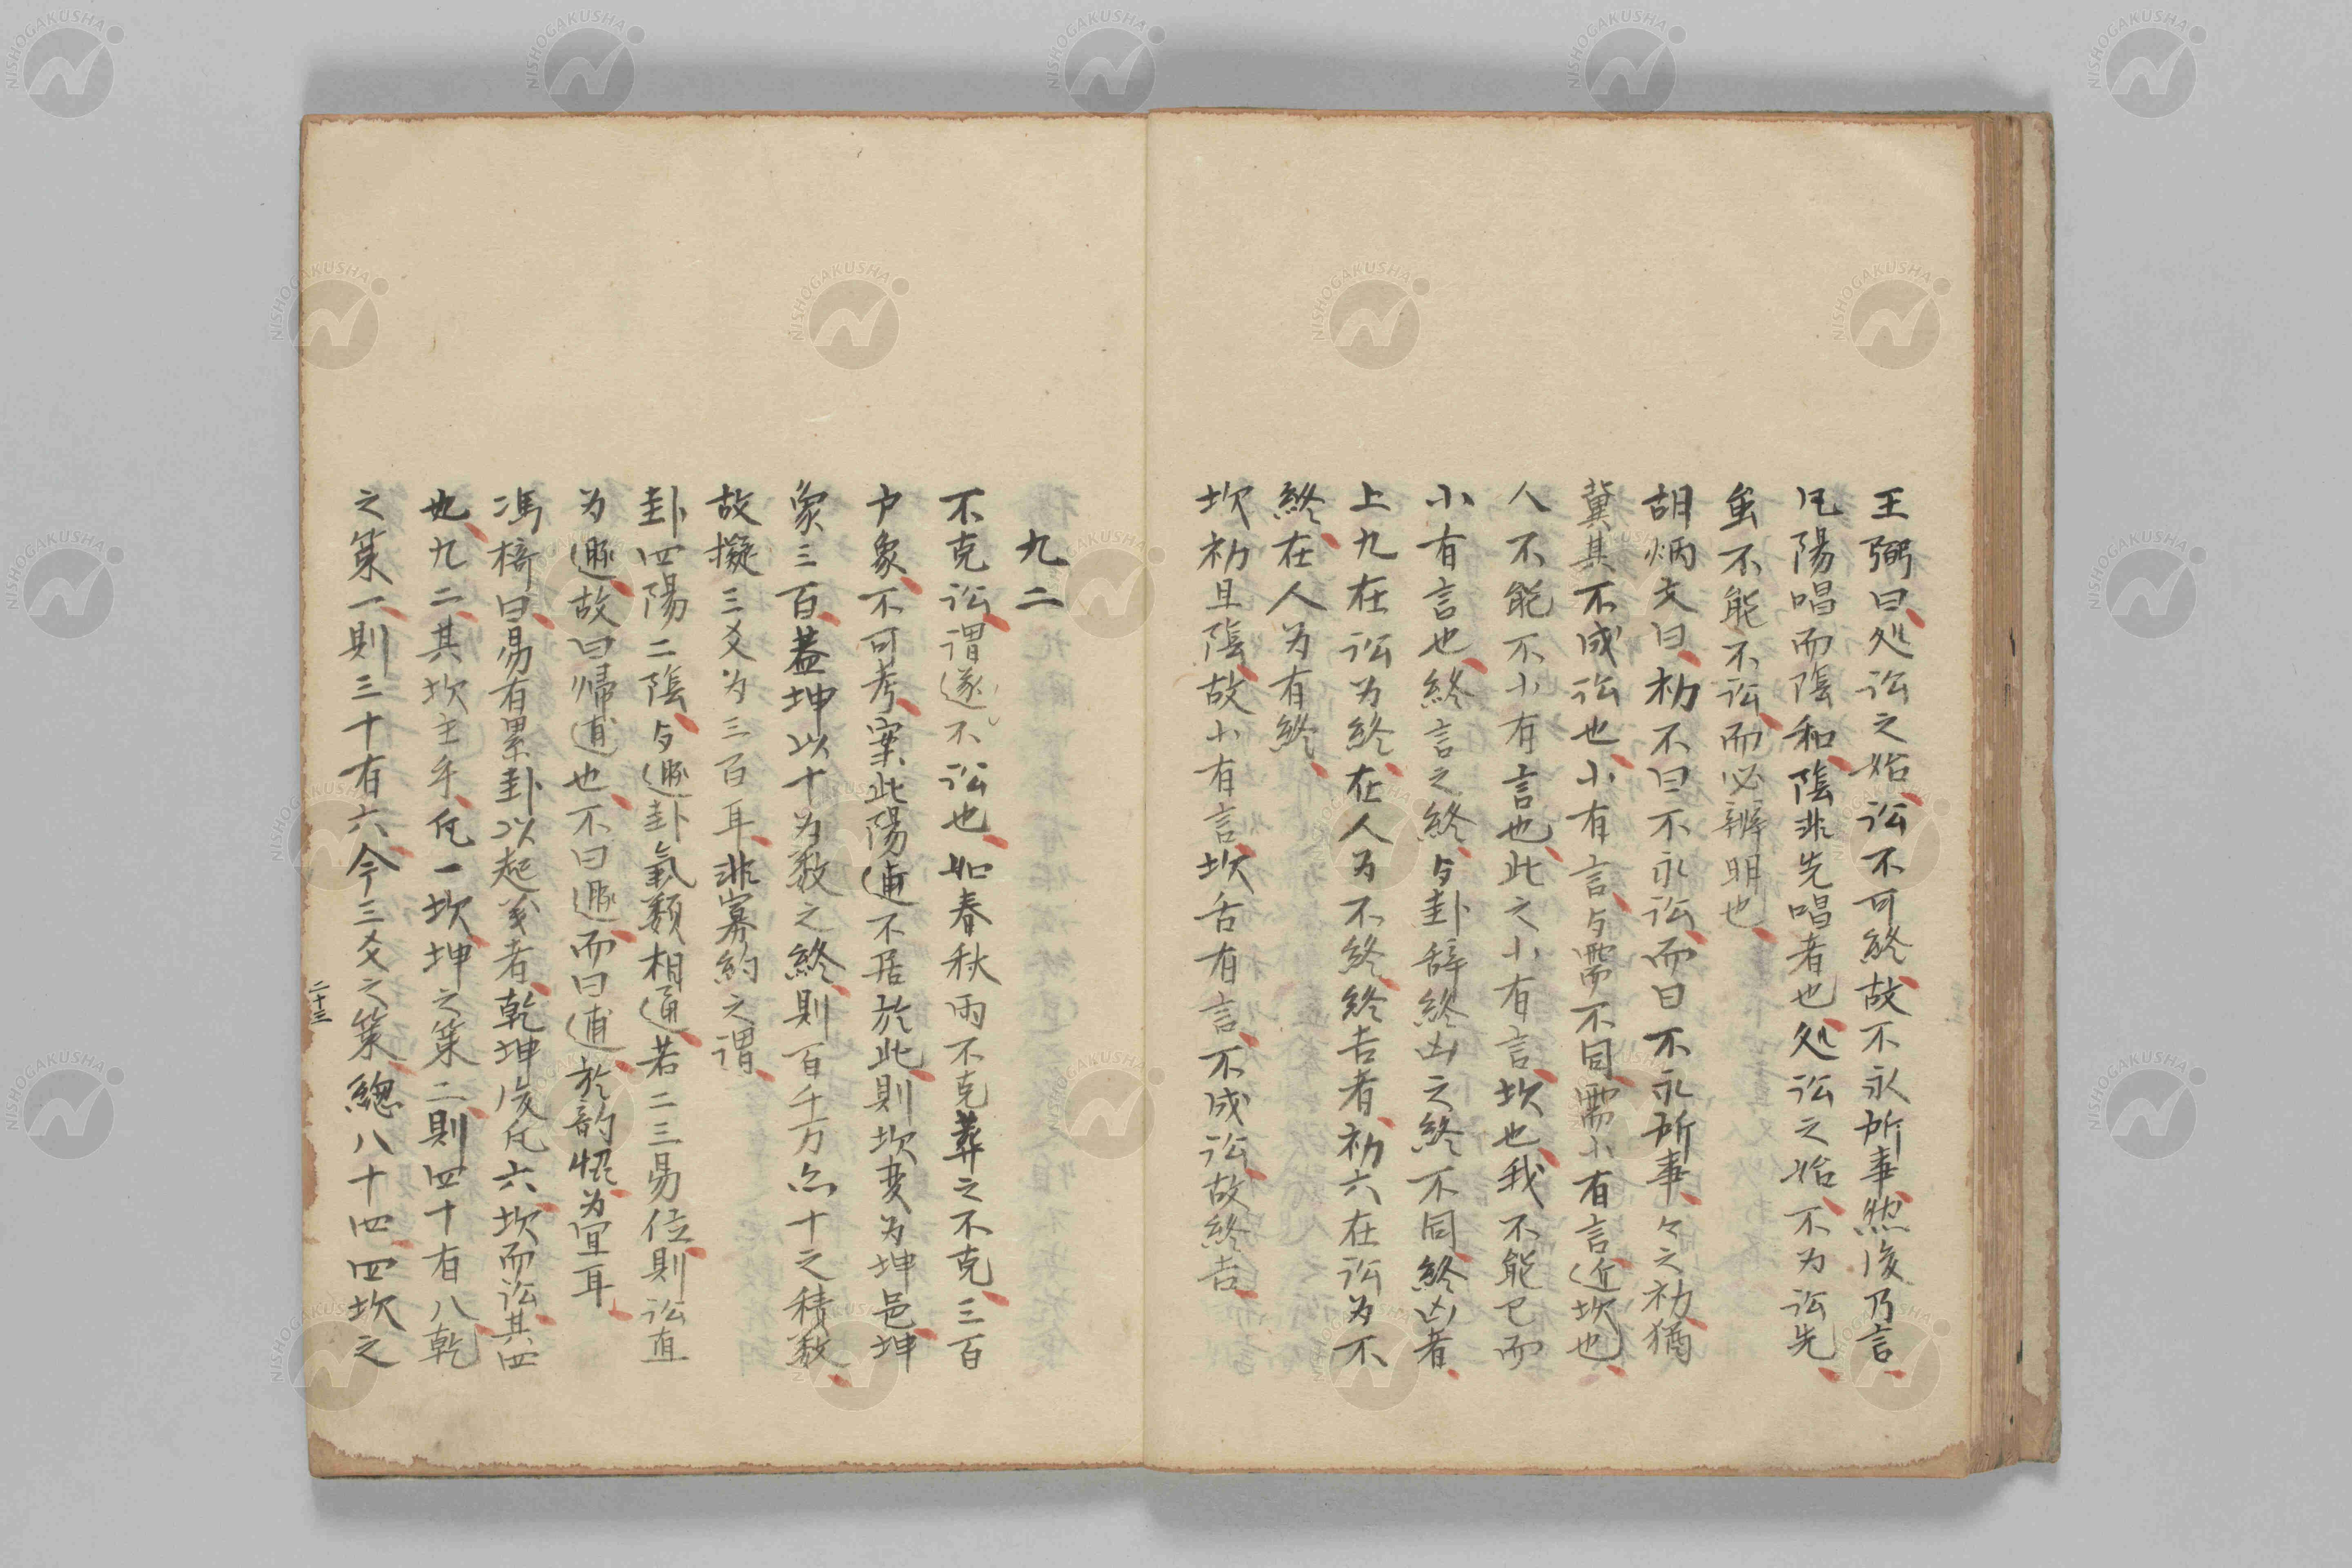 王弼曰処訟之始訟不可終故不永所事然後乃言
凡陽唱而陰和陰非先唱者也処訟之始不为訟先
虽不能不訟而必辨明也
胡炳文曰初不曰不永訟而曰不永所事々之初猶
冀其不成訟也小有言与需不同需小有言近坎也
人不能不小有言也此之小有言坎也我不能已而
小有言也終言之終与卦辞終凶之終不同終凶者
上九在訟为終在人为不終終吉者初六在訟为不
終在人为有終
坎初且陰故小有言坎舌有言不成訟故終吉
九二
不克訟謂遂不訟也如春秋雨不克葬之不克三百
户象不可考案此陽逋不居於此則坎变为坤邑坤
象三百蓋坤以十为数之終則百千万亦十之積数
故擬三爻为三百耳非寡約之謂
卦四陽二陰与遯卦氣類相通若二三易位則訟直
为遯故曰帰逋也不曰遯而曰逋於韵愠为宜耳
馮椅曰易有累卦以起义者乾坤後凡六坎而訟其四
也九二其坎主乎凡一坎坤之策二則四十有八乾
之策一則三十有六今三爻之策總八十四四坎之
二十三
NISHOGAKUSHA